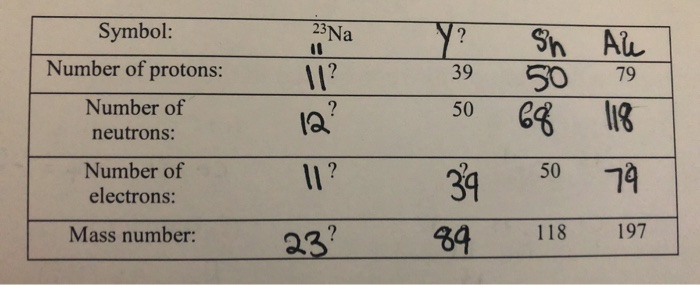 Symbol: ²³Na 11 Y? Sn Au
Number of protons: 11? 39 50 79
Number of neutrons: 12? 50 68 118
Number of electrons: 11? 39? 50 79
Mass number: 23? 89 118 197